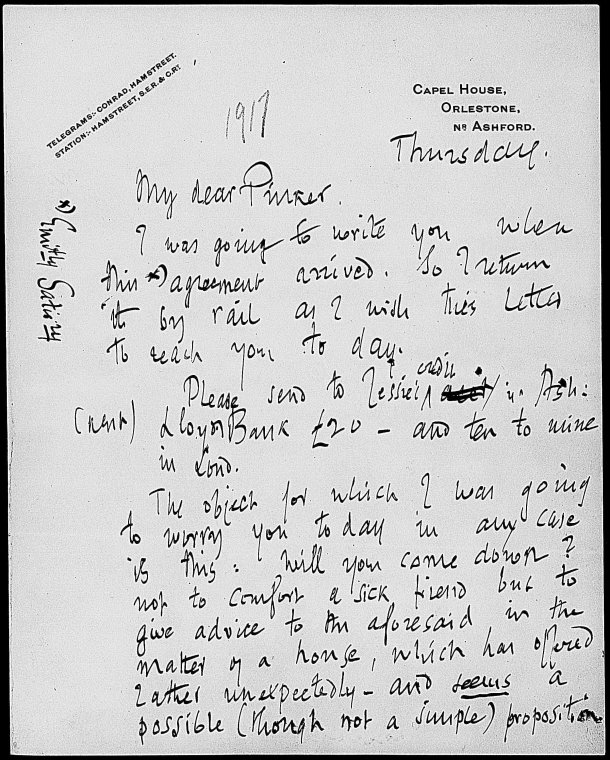 TELEGRAMS:- CONRAD, HAMSTREET.
STATION:- HAMSTREET, S.E.R. & C.RY
1917
CAPEL HOUSE,
ORLESTONE,
NR ASHFORD.
Thursday.
My dear Pinker.
I was going to write you when
this x) agreement arrived. So I return
it by rail as I wish this letter
to reach you to day.
x) Smith
Please send to Jessie's credit in Ash:
(rent) Lloyds Bank £20 – and ten to mine
in Lond.
The object for which I was going
to worry you to day in any case
is this: Will you come down?
not to comfort a sick friend but to
give advice to the aforesaid in the
matter of a house, which has offered
rather unexpectedly – and seems a
possible (though not a simple) proposition